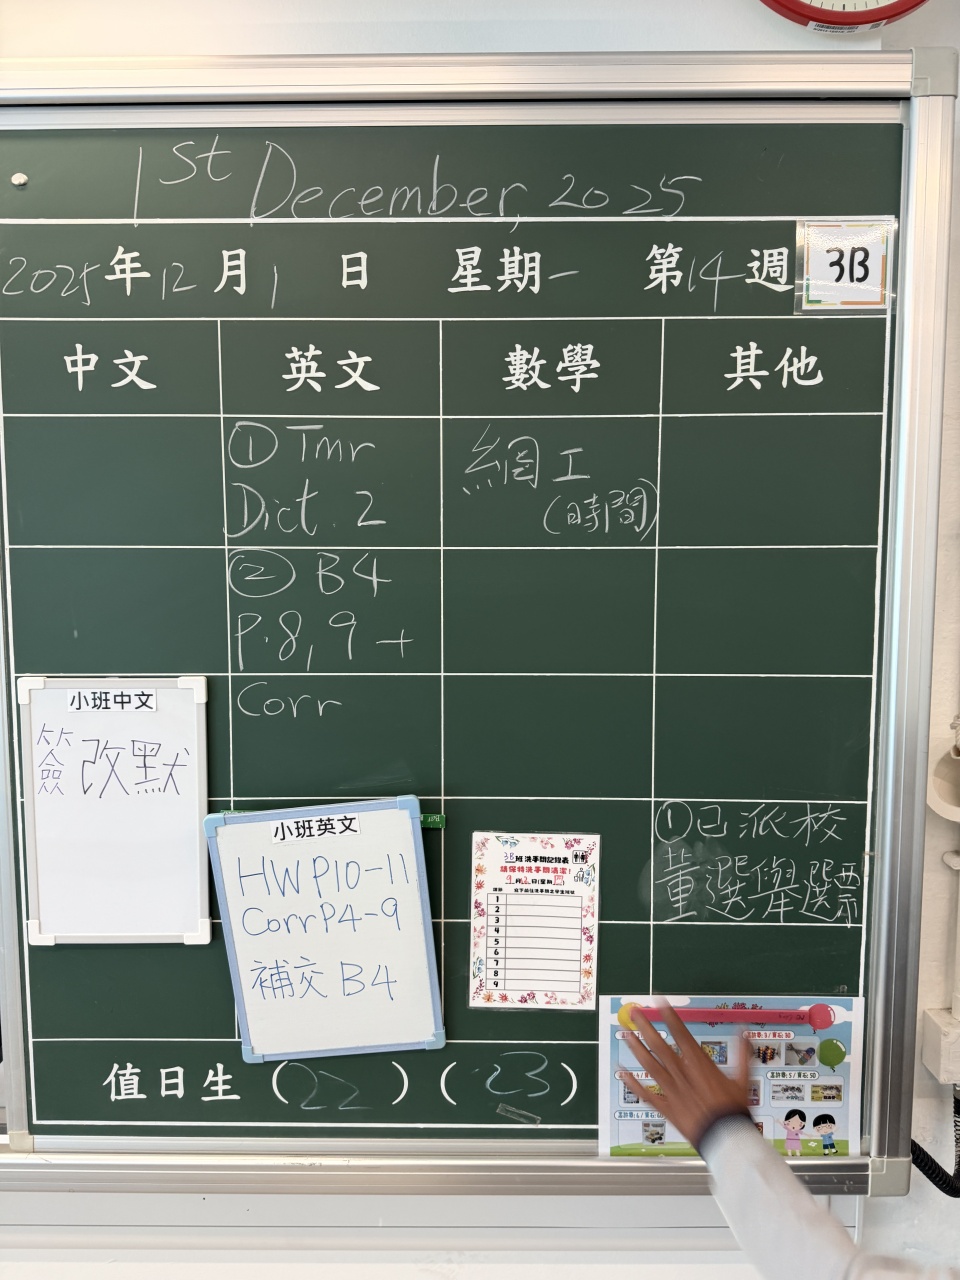 1st December, 2025
2025年12月1日 星期一 第14週
3B
中文 英文 數學 其他
① Tmr
Dict. 2
② B4
P.8, 9 +
Corr
網工
(時間)
①已派校
董選舉選票
小班中文
簽改默
小班英文
HW P10-11
Corr P4-9
補交 B4
3B班洗手間記錄表
請保持洗手間清潔!
1
2
3
4
5
6
7
8
9
值日生 (22) (23)